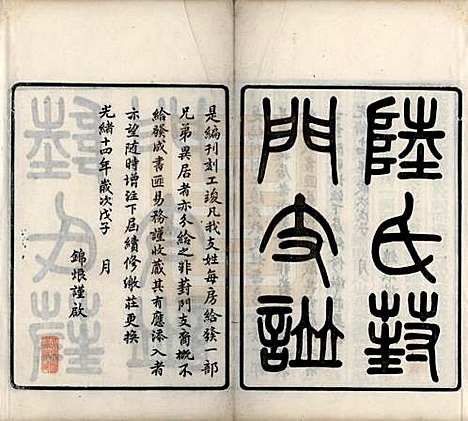 陸氏葑
門支譜
是編刊刻工竣凡我支姓每房給發一部
兄弟異居者亦分給之非葑門支裔概不
給發成書匪易務謹收藏其有應添入者
亦望隨時增注下屆續修繳莊更換
光緒十四年歲次戊子 月
錦烺謹啟